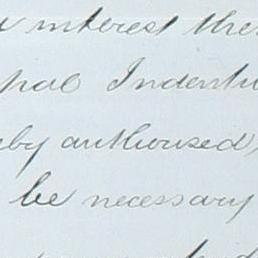 interest the
pal Indentu
eby authorised,
be necessary